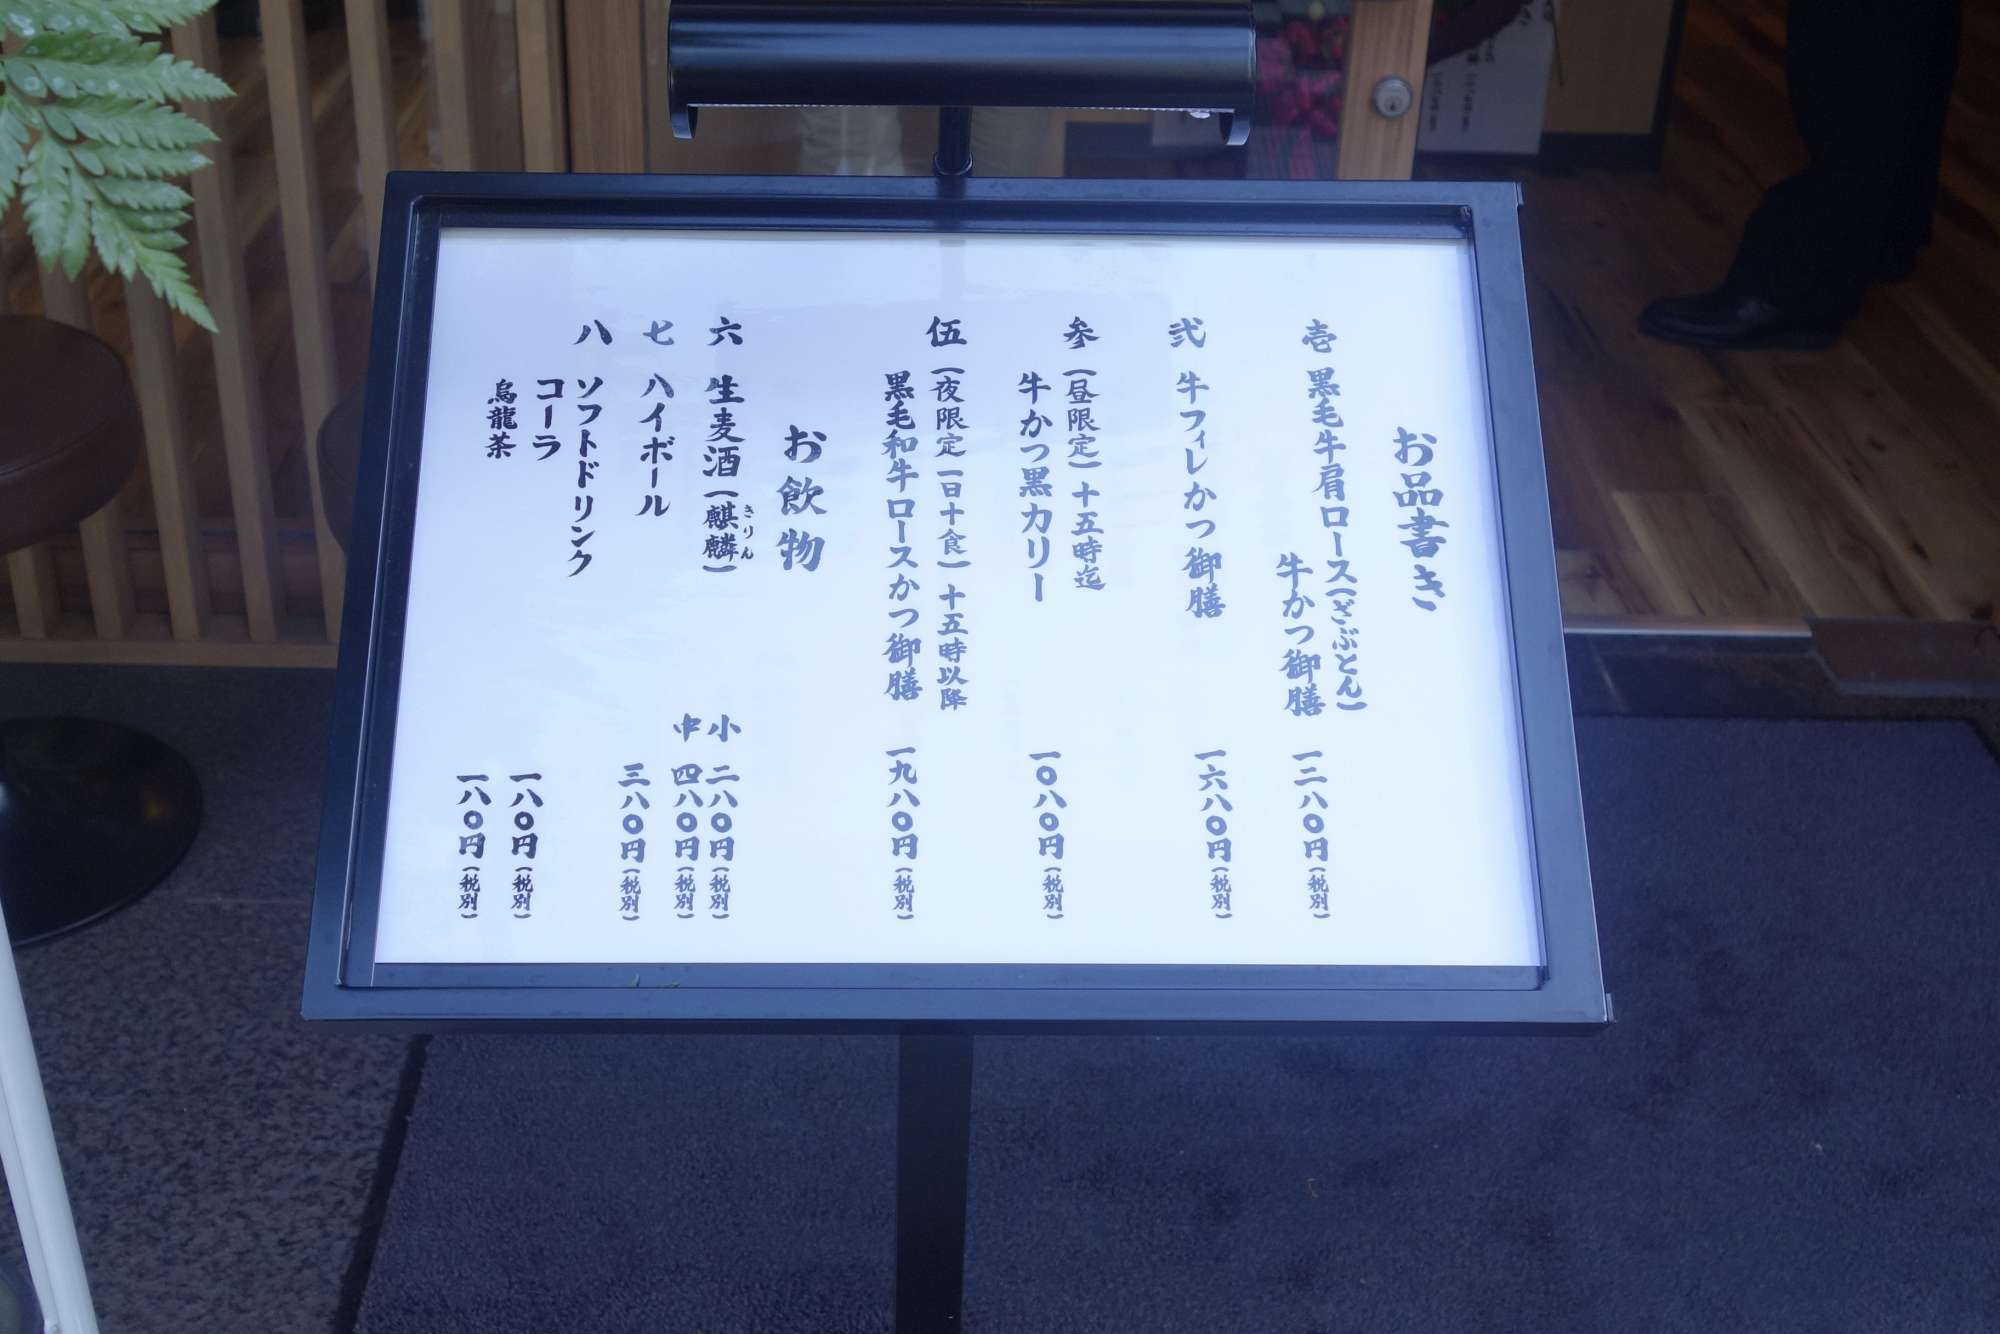 お品書き
壱 黒毛牛肩ロース(ざぶとん)
牛かつ御膳 一二八〇円(税別)
弐 牛フィレかつ御膳 一六八〇円(税別)
参 (昼限定) 十五時迄
牛かつ黒カリー 一〇八〇円(税別)
伍 (夜限定 一日十食) 十五時以降
黒毛和牛ロースかつ御膳 一九八〇円(税別)
お飲物
六 生麦酒(麒麟) 小 二八〇円(税別)
きりん
中 四八〇円(税別)
七 ハイボール 三八〇円(税別)
八 ソフトドリンク
コーラ 一八〇円(税別)
烏龍茶 一八〇円(税別)